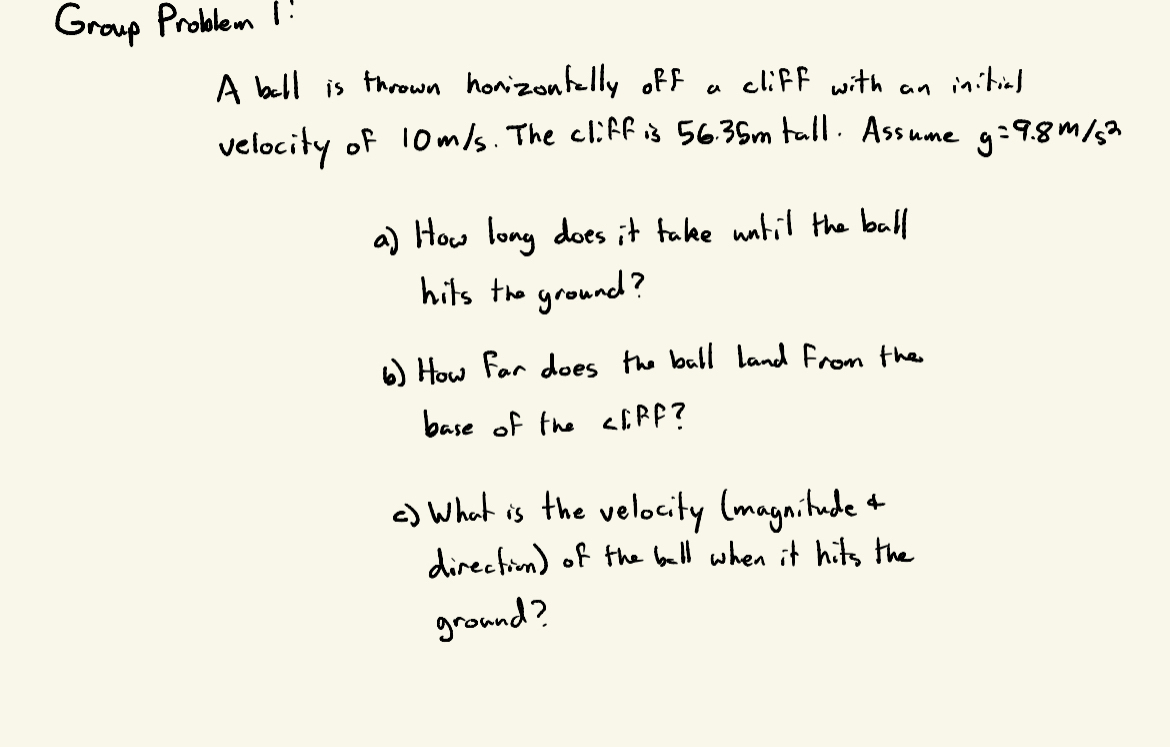 Group Problem 1:
A ball is thrown horizontally off a cliff with an initial
velocity of 10m/s. The cliff is 56.35m tall. Assume g=9.8m/s²
a) How long does it take until the ball
hits the ground?
b) How far does the ball land from the
base of the cliff?
c) What is the velocity (magnitude &
direction) of the ball when it hits the
ground?